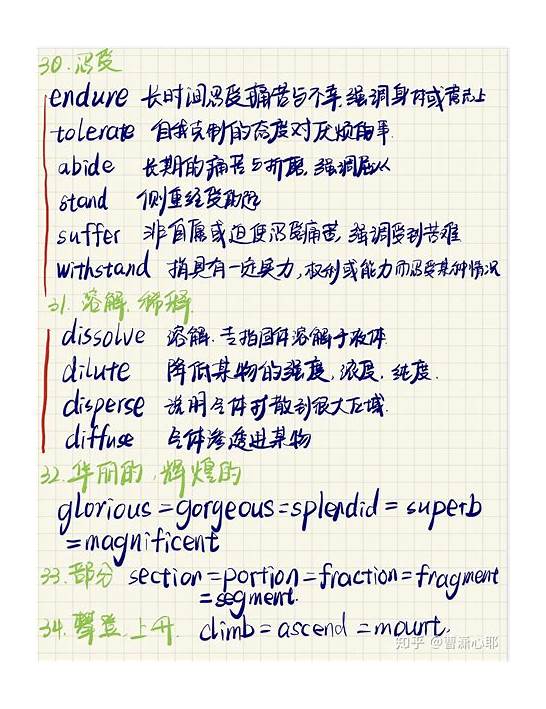 30.忍受
endure 长时间忍受痛苦与不幸,强调身体或意志上
tolerate 自我克制的态度对厌烦的事
abide 长期的痛苦与折磨,强调屈从
stand 侧重经受的起
suffer 非自愿或迫使忍受痛苦,强调受到苦难
withstand 指具有一定实力,权利或能力而忍受某种情况
31.溶解.稀释.
dissolve 溶解.专指固体溶解于液体.
dilute 降低某物的强度,浓度,纯度.
disperse 说明气体对散到很大区域.
diffuse 气体渗透进某物
32.华丽的,辉煌的
glorious=gorgeous=splendid=superb
=magnificent
33.部分 section=portion=fraction=fragment
=segment.
34.攀登.上升. climb=ascend=mount.
知乎 @曹潇心耶